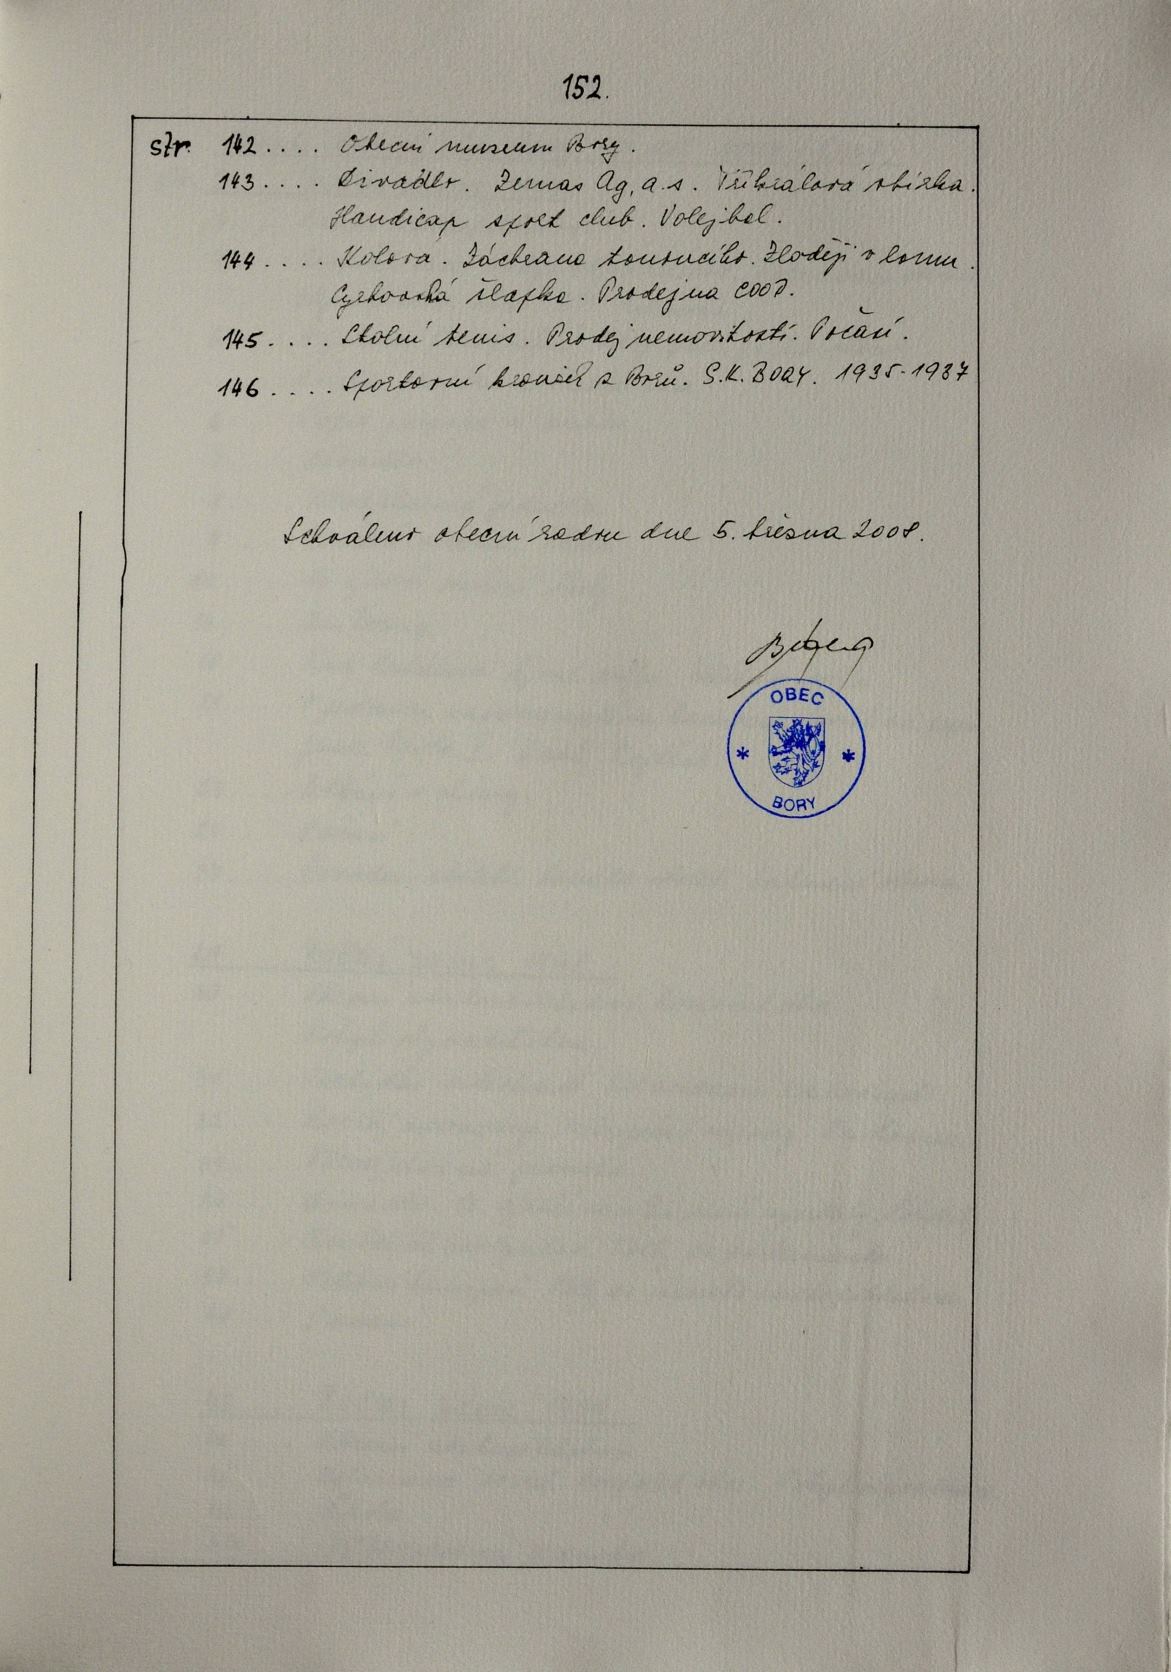 152.
str. 142.... Obecní museum Bory.
143.... Divadlo. Zemas Ag, a.s. Tříkrálová sbírka.
Handicap sport club. Volejbal.
144.... Kolová. Záchrana tonoucího. Zloději v lomu.
Cyrkovská šlapka. Prodejna COOP.
145.... Stolní tenis. Prodej nemovitostí. Počasí.
146.... Sportovní kroniek z Borů. S.K. BORY. 1935-1937
Schváleno obecní radou dne 5. března 2008.
OBEC
* *
BORY